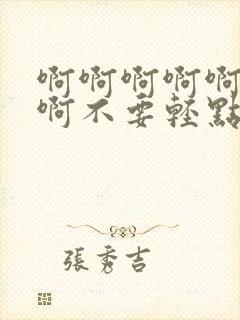 啊啊啊啊啊
啊不要輕點
張秀吉